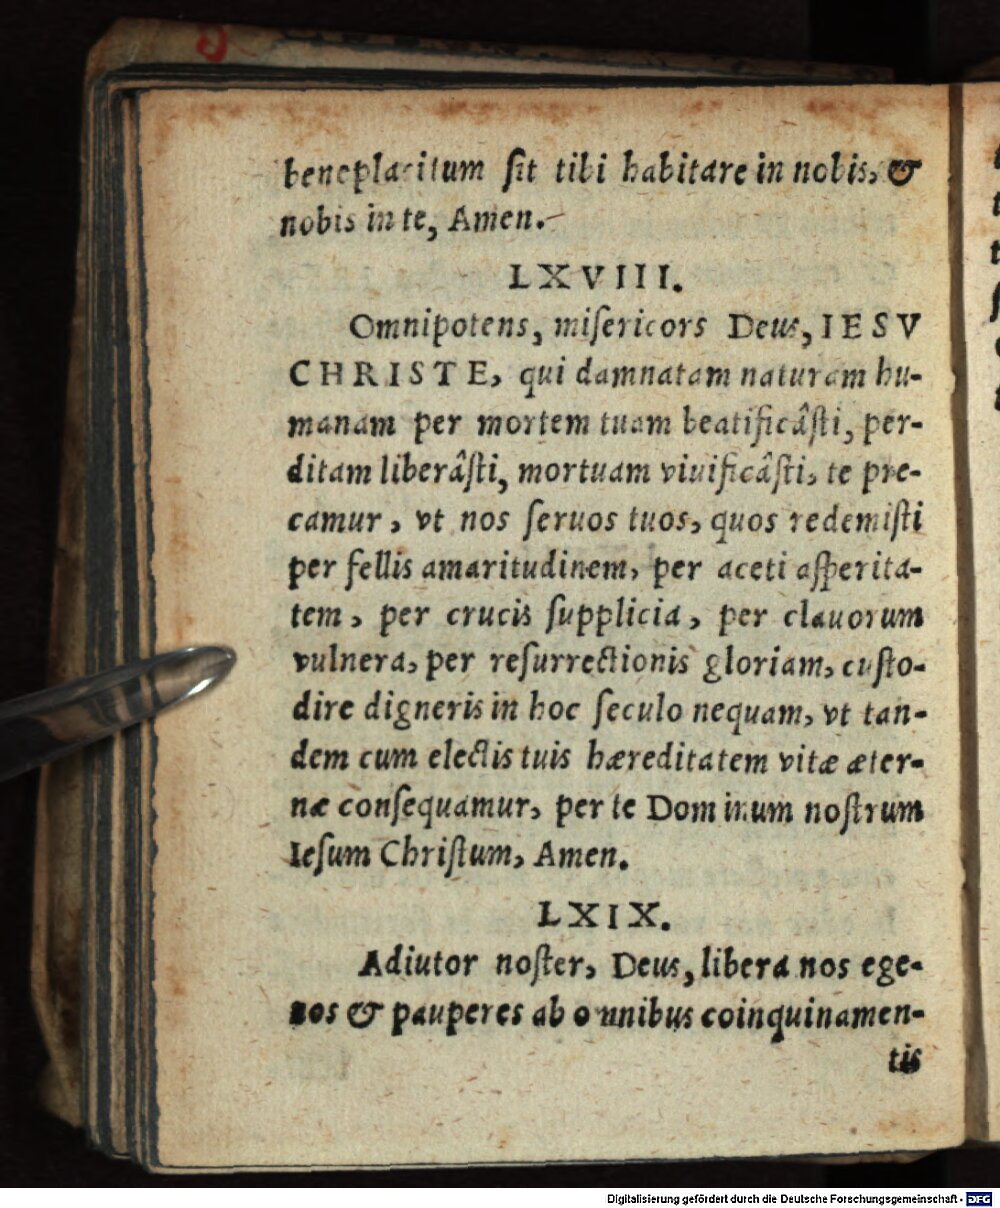 beneplacitum ſit tibi habitare in nobis, &
nobis in te, Amen.
LXVIII.
Omnipotens, miſericors Deus, IESV
CHRISTE, qui damnatam naturam hu-
manam per mortem tuam beatificâſti, per-
ditam liberâſti, mortuam viuificâſti, te pre-
camur, vt nos ſeruos tuos, quos redemiſti
per fellis amaritudinem, per aceti aſperita-
tem, per crucis ſupplicia, per clauorum
vulnera, per reſurrectionis gloriam, cuſto-
dire digneris in hoc ſeculo nequam, vt tan-
dem cum electis tuis hæreditatem vitæ æter-
næ conſequamur, per te Dominum noſtrum
Ieſum Chriſtum, Amen.
LXIX.
Adiutor noſter, Deus, libera nos ege-
nos & pauperes ab omnibus coinquinamen-
tis
Digitalisierung gefördert durch die Deutsche Forschungsgemeinschaft - DFG